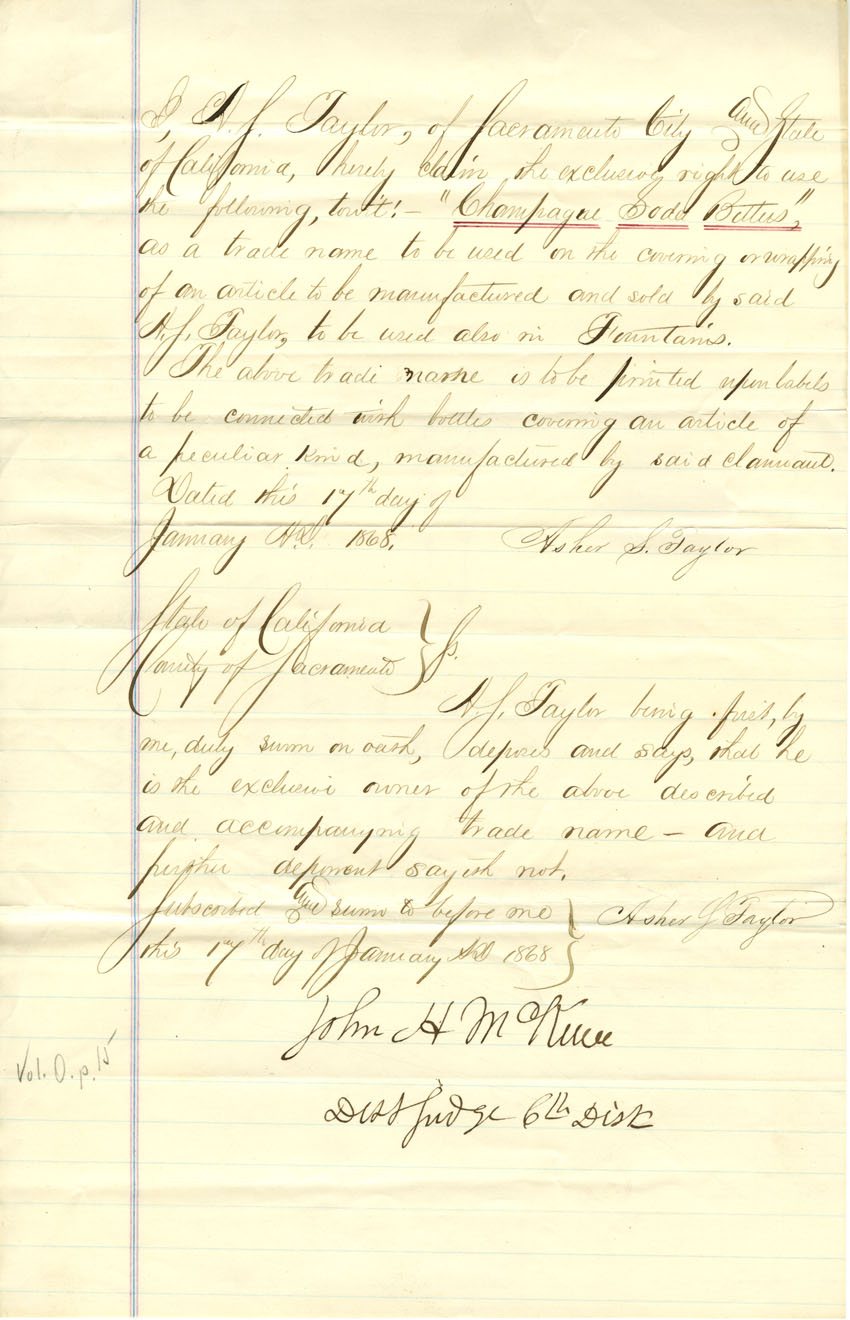 I, A. S. Taylor, of Sacramento City and State
of California, hereby claim the exclusive right to use
the following, towit: – "Champagne Soda Bitters",
as a trade name to be used on the covering or wrapping
of an article to be manufactured and sold by said
A. S. Taylor, to be used also in Fountains.
The above trade name is to be printed upon labels
to be connected with bottles covering an article of
a peculiar kind, manufactured by said claimant.
Dated this 17th day of
January A.D. 1868.
Asher S. Taylor
State of California
County of Sacramento } Ss.
A. S. Taylor being first, by
me, duly sworn on oath, deposes and says, that he
is the exclusive owner of the above described
and accompanying trade name – and
further deponent sayeth not.
Subscribed and sworn to before me } Asher S Taylor
this 17th day of January AD 1868
John H McKune
Vol. O. p. 15
Dist Judge 6th Dist